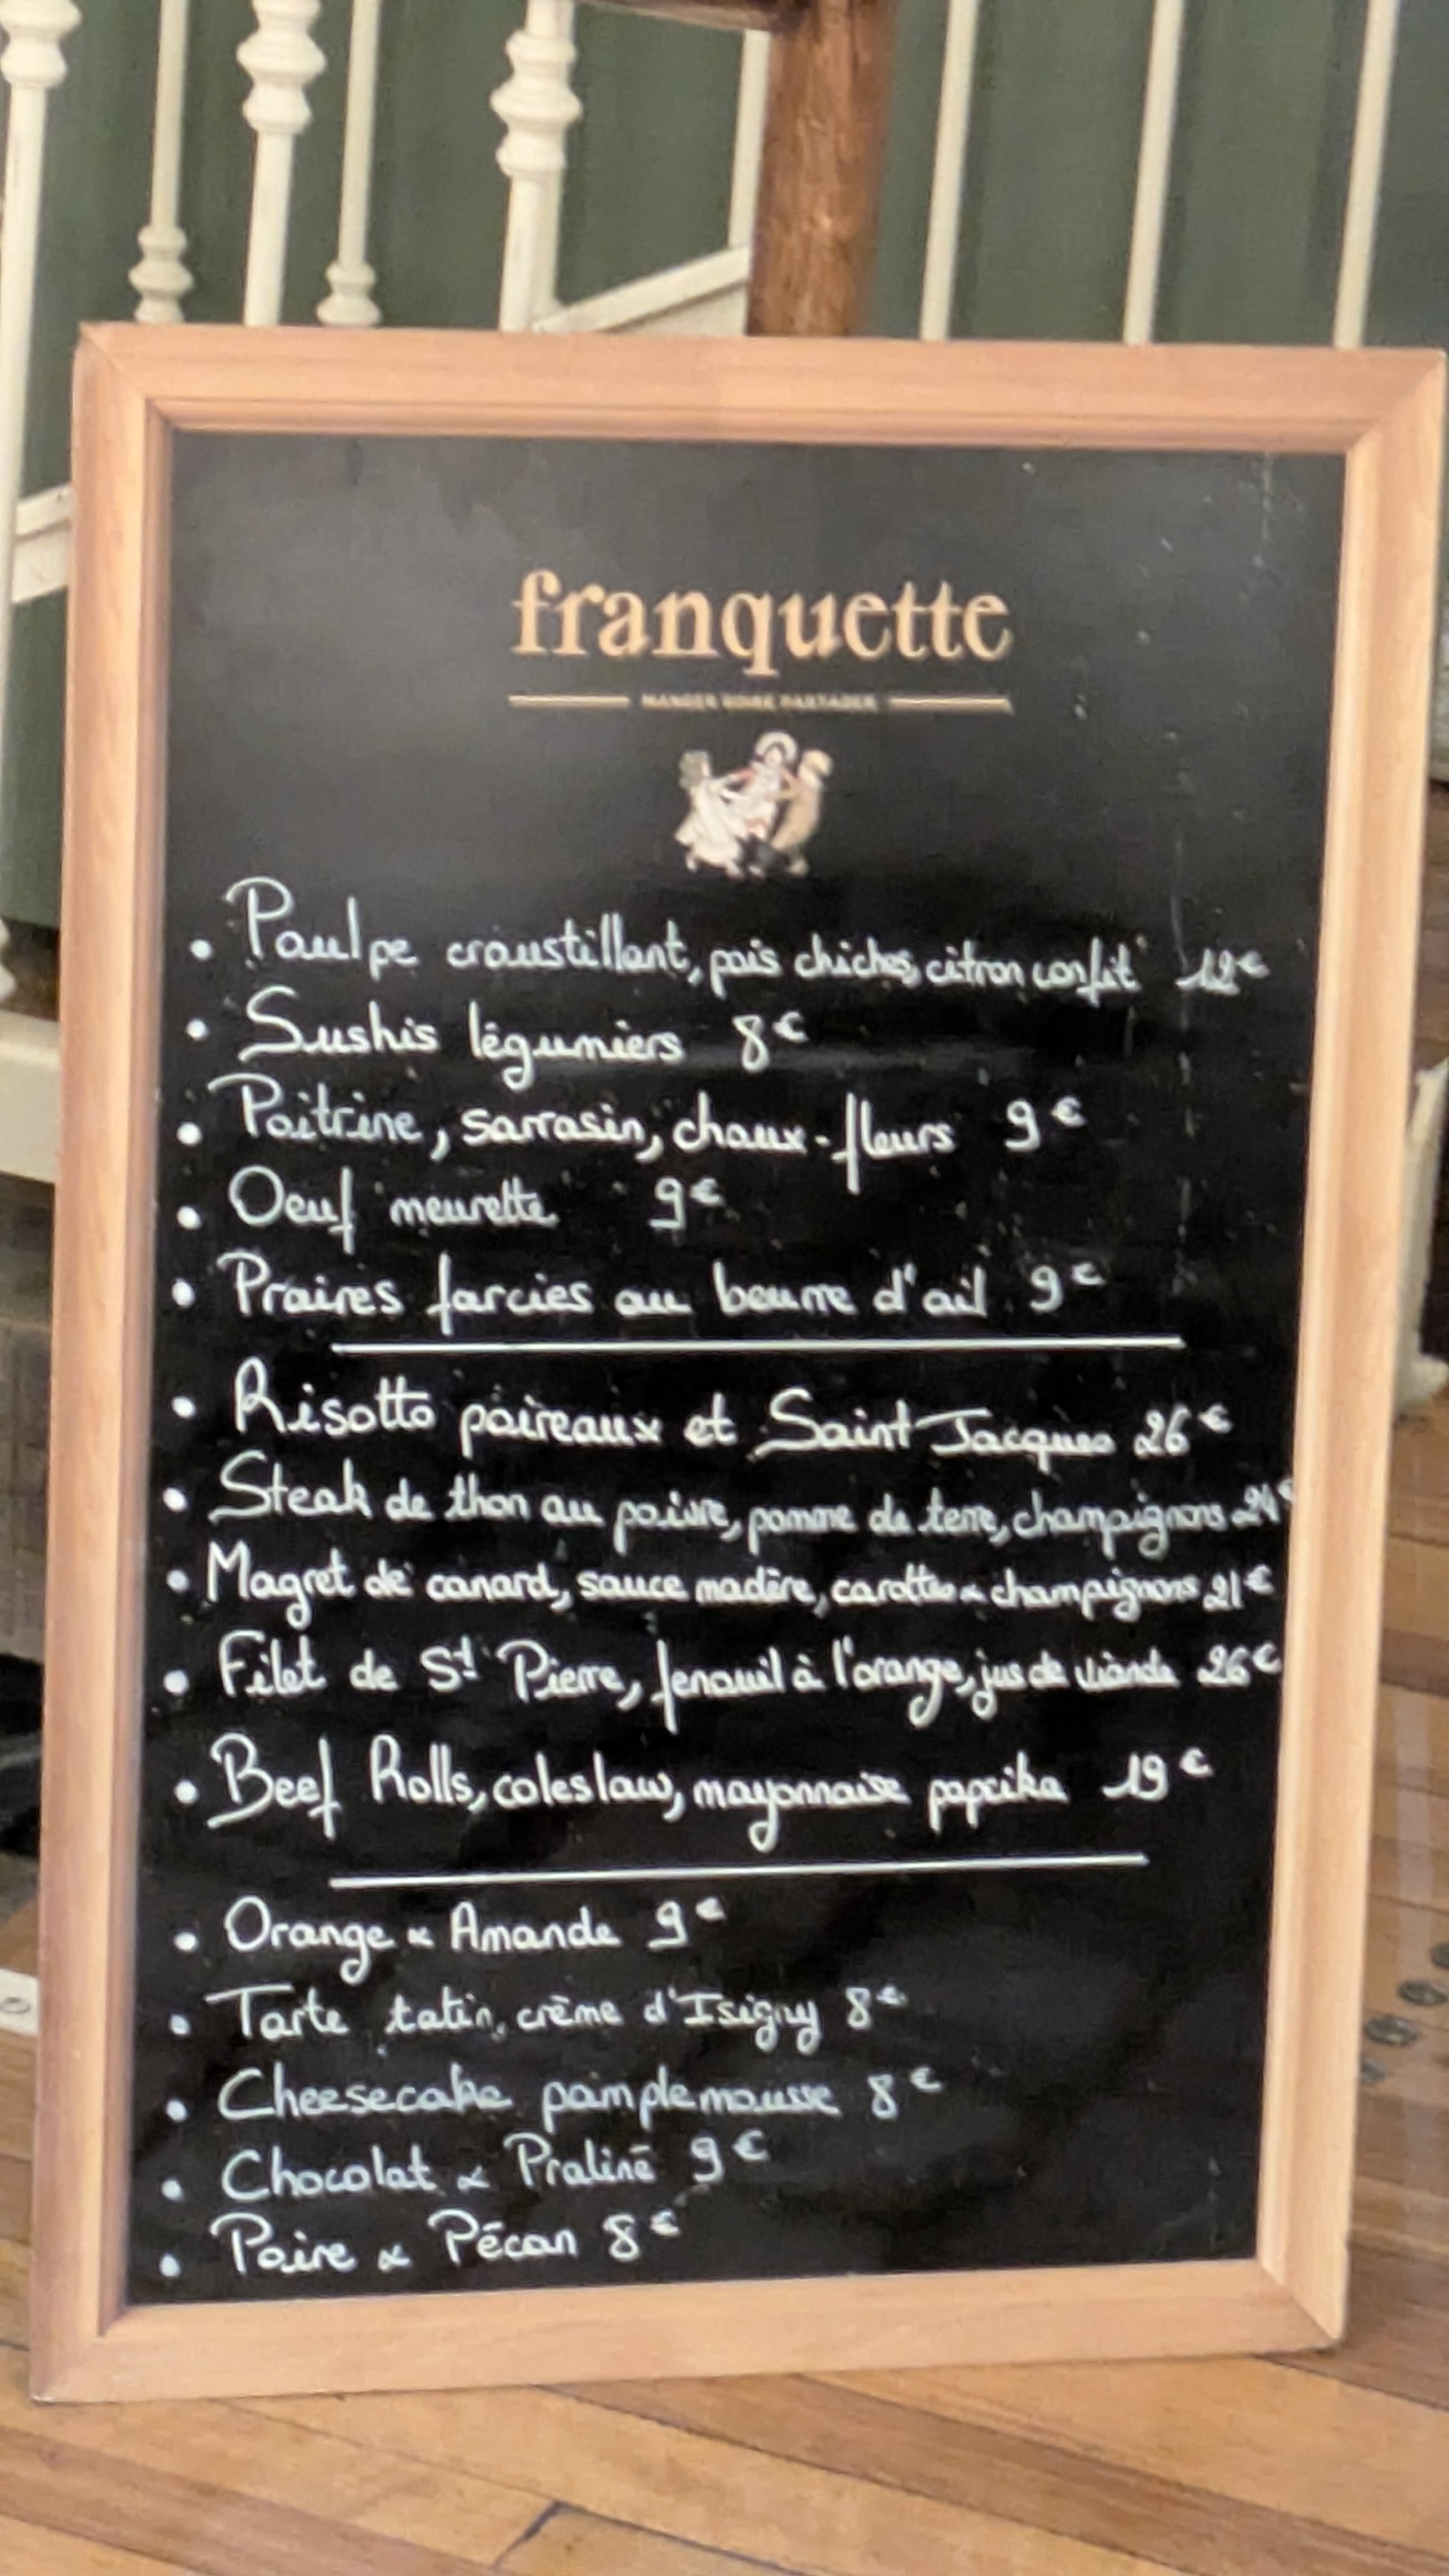 franquette
MANGER BOIRE PARTAGER
• Poulpe croustillant, pois chiches, citron confit 12€
• Sushis légumiers 8€
• Poitrine, sarrasin, choux-fleurs 9€
• Oeuf meurette 9€
• Praires farcies au beurre d'ail 9€
• Risotto poireaux et Saint Jacques 26€
• Steak de thon au poivre, pomme de terre, champignons
• Magret de canard, sauce madère, carottes & champignons 21€
• Filet de St Pierre, fenouil à l'orange, jus de viande 26€
• Beef Rolls, coleslaw, mayonnaise paprika 19€
• Orange & Amande 9€
• Tarte tatin, crème d'Isigny 8€
• Cheesecake pamplemousse 8€
• Chocolat & Praliné 9€
• Poire & Pécan 8€